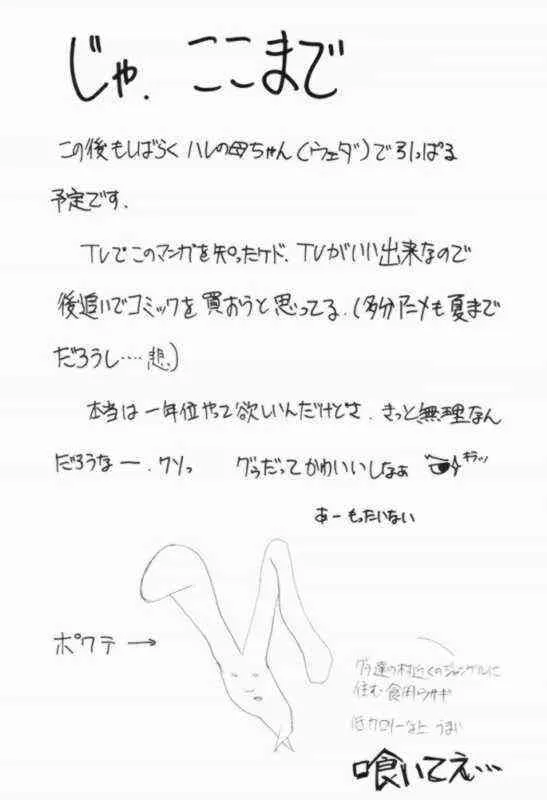 じゃ、ここまで
この後もしばらくハレの母ちゃん(ウェダ)で引っぱる
予定です。
TVでこのマンガを知ったケド、TVがいい出来なので
後追いでコミックを買おうと思ってる。(多分アニメも夏まで
だろうし‥‥悲)
本当は一年位やって欲しいんだけどさ、きっと無理なん
だろうなー、クソっ グゥだってかわいいしなぁ ギラッ
あーもったいない
ポクテ→
グゥ達の村近くのジャングルに
住む食用ウサギ
低カロリーな上うまい
喰いてえ…